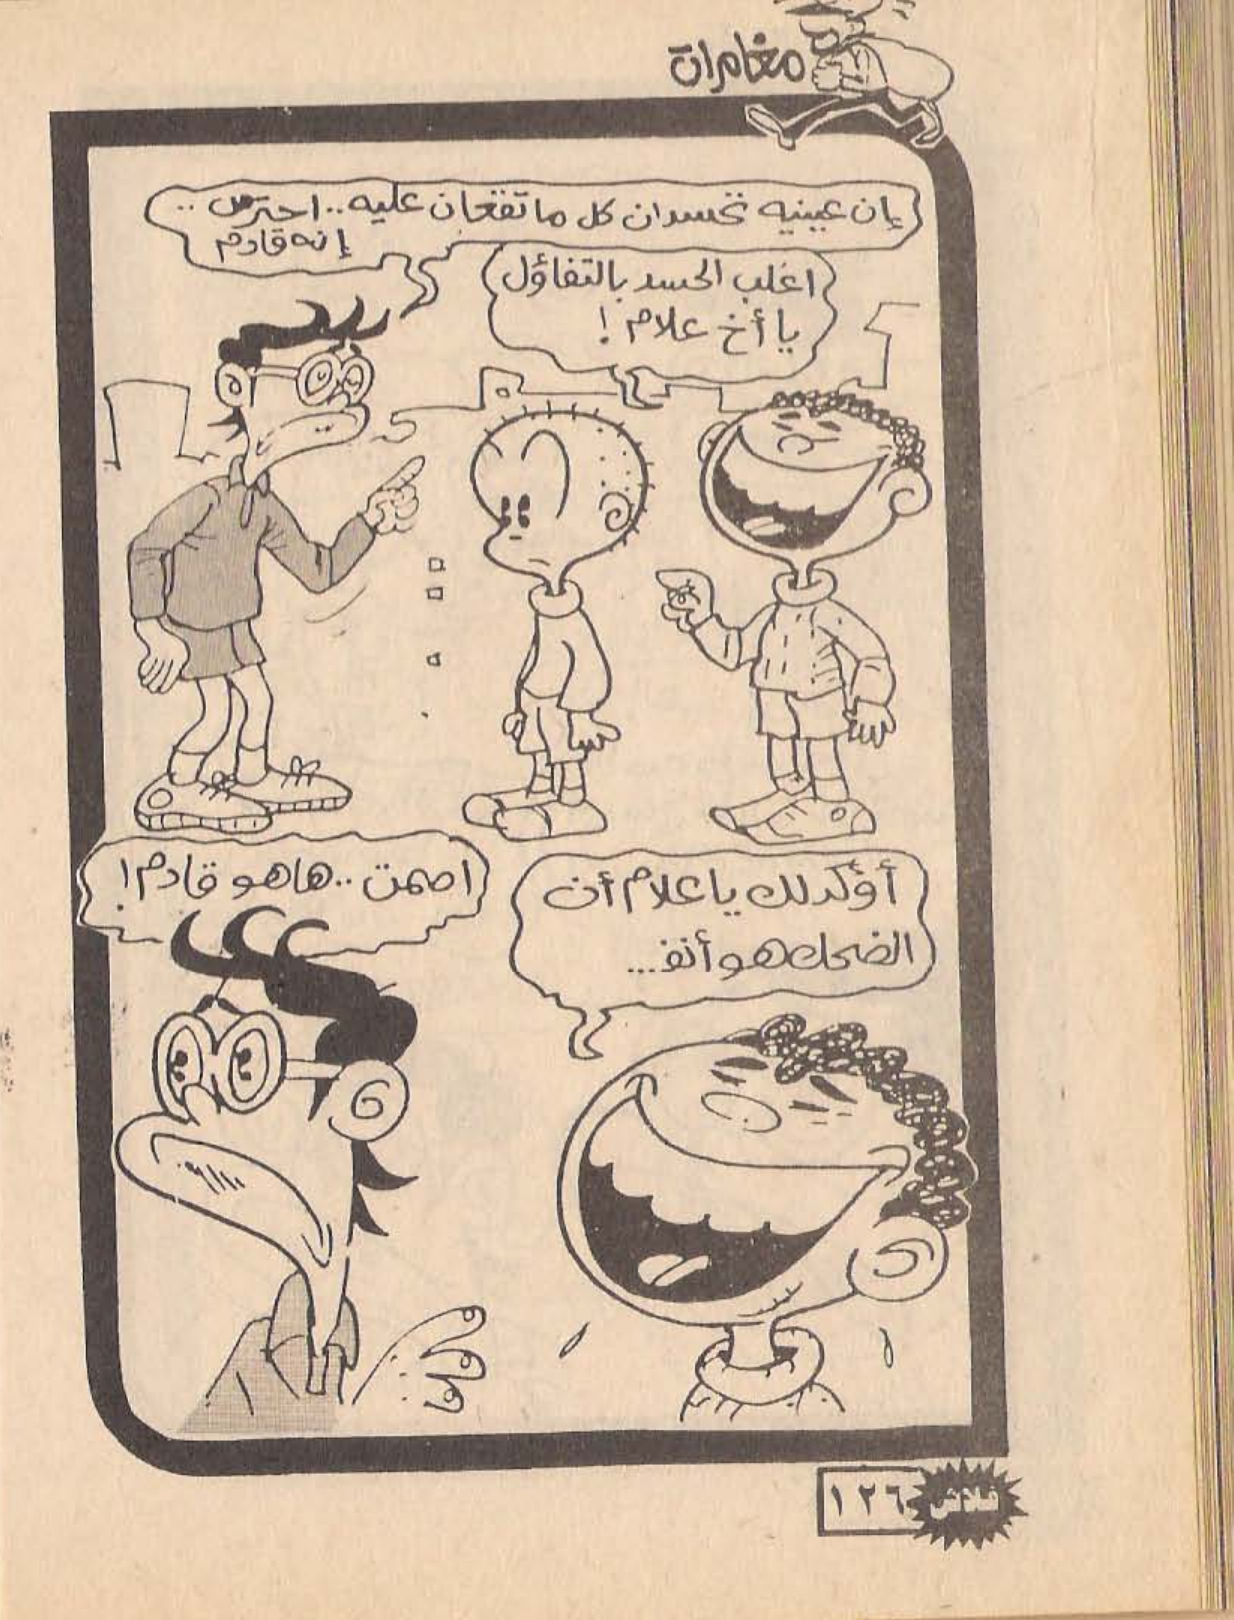 مغامرات
إن عينيه تحسدان كل ما تقعان عليه.. احترس..
إنه قادم
اغلب الحسد بالتفاؤل
يا أخ علام!
أؤكد لك يا علام أن
الضحك هو أنفـ...
اصمت.. ها هو قادم!
فلاش
١٢٦